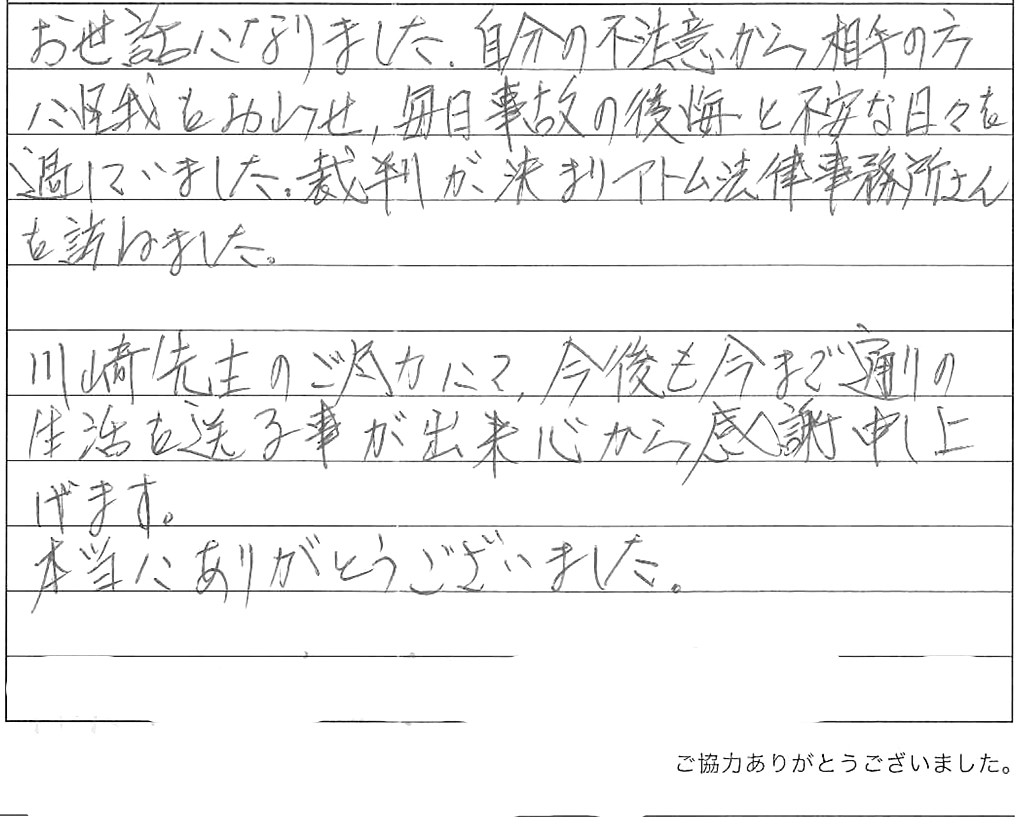 お世話になりました。自分の不注意から相手の方
に怪我をおわせ、毎日事故の後悔と不安な日々を
過していました。裁判が決まりアトム法律事務所さん
を訪ねました。
川崎先生のご尽力にて、今後も今まで通りの
生活を送る事が出来心から感謝申し上
げます。
本当にありがとうございました。
ご協力ありがとうございました。